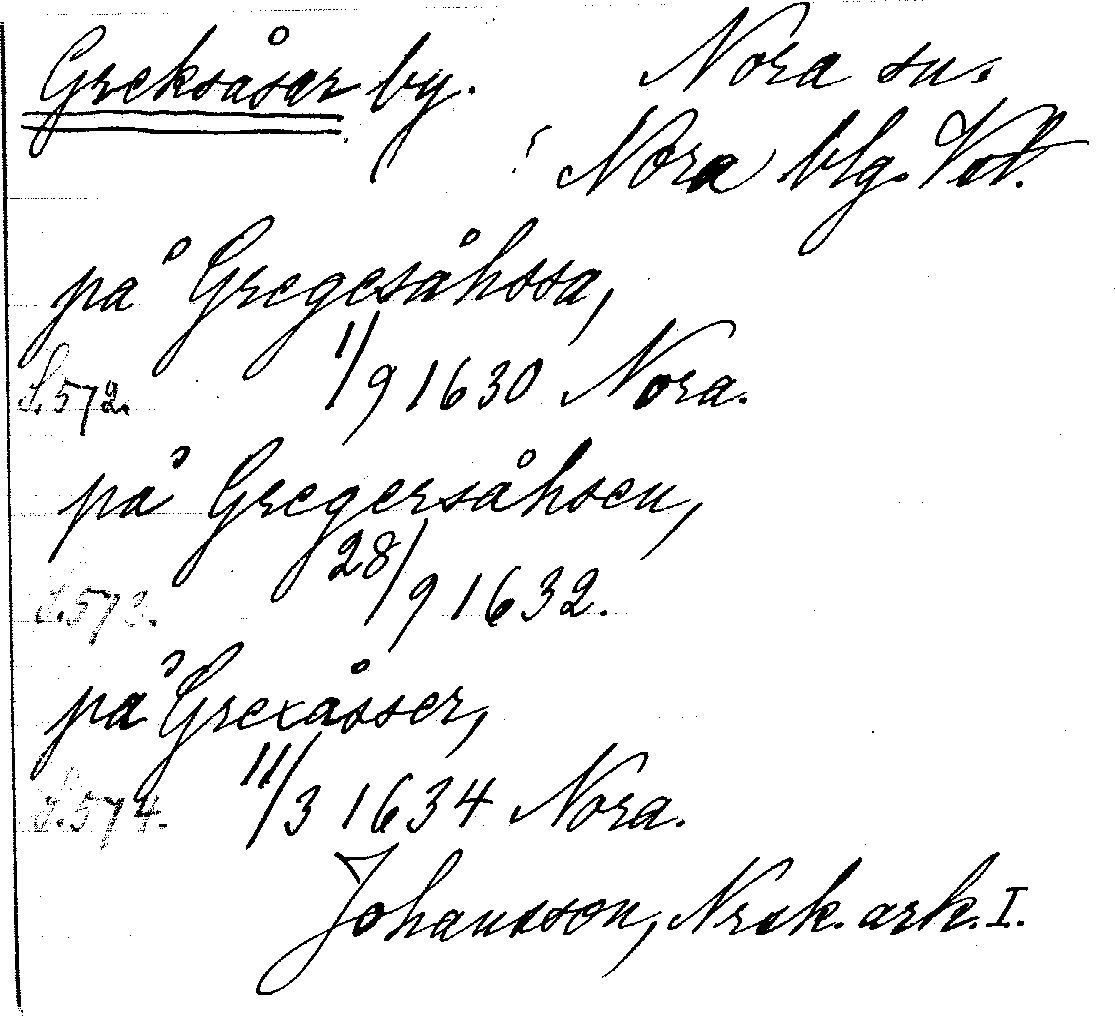 Greksåsar by. Nora sn.
Nora blg. Vstl.
på Gregesåhssa,
S. 572. 1/9 1630 Nora.
på Gregersåhsen,
S. 573. 28/9 1632.
på Grexåsser,
S. 574. 11/3 1634 Nora.
Johansson, Norsk. ark. I.